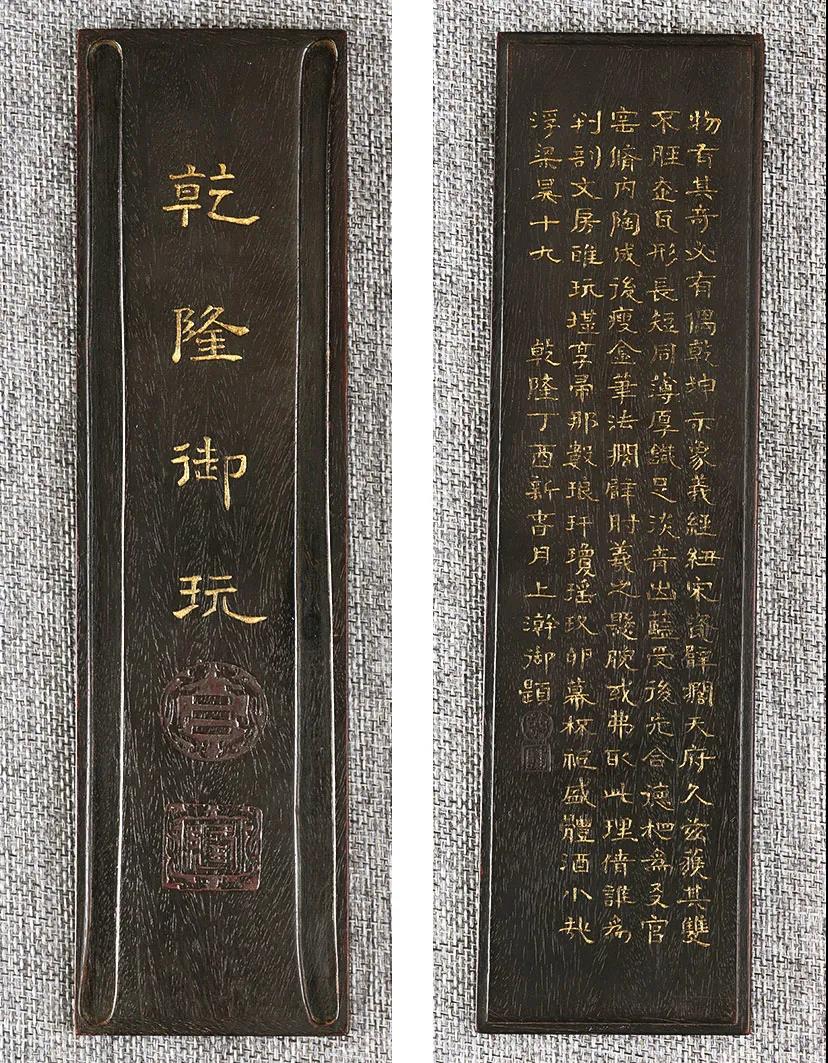 乾隆御玩
物有其奇必有偶乾坤示象義經紐宋瓷臂擱天府久茲獲其雙
不脛走瓦形長短同薄厚鐵足淡青出藍受後先合德相為友官
窯脩內陶成後瘦金筆法擱臂肘羲之懸腕或弗取此理倩誰為
判剖文房雅玩堪享帚那數琅玕瓊瑤玖卵幕杯秪盛體酒小哉
浮梁昊十九 乾隆丁酉新春月上澣御題